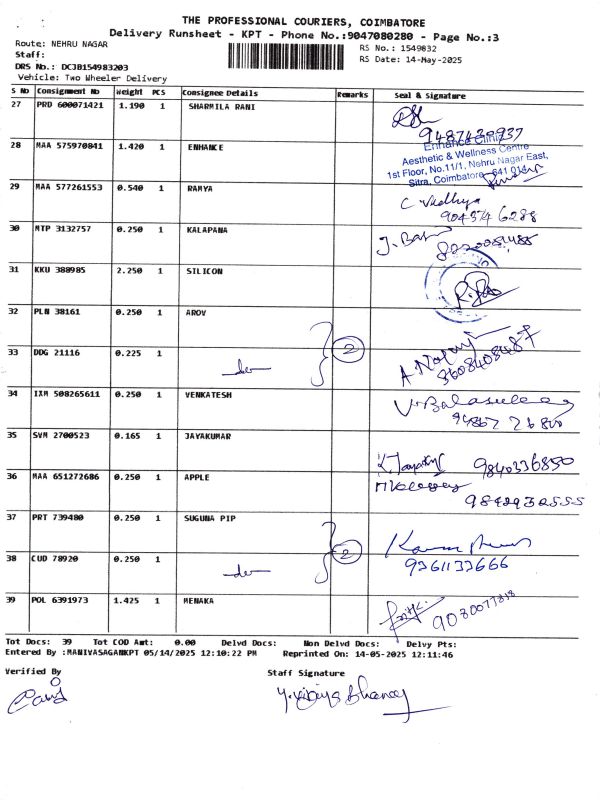 THE PROFESSIONAL COURIERS, COIMBATORE
Delivery Runsheet - KPT - Phone No.:9047080280 - Page No.:3
Route: NEHRU NAGAR RS No.: 1549832
Staff: RS Date: 14-May-2025
DRS No.: DCJB154983203
Vehicle: Two Wheeler Delivery
S No Consignment No Weight PCS Consignee Details Remarks Seal & Signature
27 PRD 600071421 1.190 1 SHARMILA RANI
9487430937
28 MAA 575970841 1.420 1 ENHANCE
Enhance Clinic
Aesthetic & Wellness Centre
1st Floor, No.11/1, Nehru Nagar East,
Sitra, Coimbatore 641 014
29 MAA 577261553 0.540 1 RAMYA
30 MTP 3132757 0.250 1 KALAPANA
31 KKU 388985 2.250 1 SILICON
32 PLN 38161 0.250 1 AROV
33 DDG 21116 0.225 1 2
34 IXM 508265611 0.250 1 VENKATESH
35 SVM 2700523 0.165 1 JAYAKUMAR
9840336850
36 MAA 651272686 0.250 1 APPLE
37 PRT 739480 0.250 1 SUGUNA PIP
38 CUD 78920 0.250 1 2
9361133666
39 POL 6391973 1.425 1 MENAKA
Tot Docs: 39 Tot COD Amt: 0.00 Delvd Docs: Non Delvd Docs: Delvy Pts:
Entered By :MANIVASAGANKPT 05/14/2025 12:10:22 PM Reprinted On: 14-05-2025 12:11:46
Verified By Staff Signature